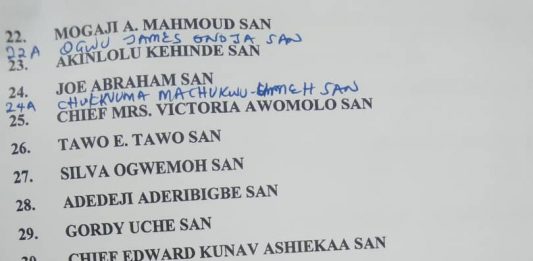 22. MOGAJI A. MAHMOUD SAN
22A OGWU JAMES ONOJA SAN
23. AKINLOLU KEHINDE SAN
24. JOE ABRAHAM SAN
24A CHUKWUMA MACHUKWU- SAN
25. CHIEF MRS. VICTORIA AWOMOLO SAN
26. TAWO E. TAWO SAN
27. SILVA OGWEMOH SAN
28. ADEDEJI ADERIBIGBE SAN
29. GORDY UCHE SAN
30. CHIEF EDWARD KUNAV ASHIEKAA SAN